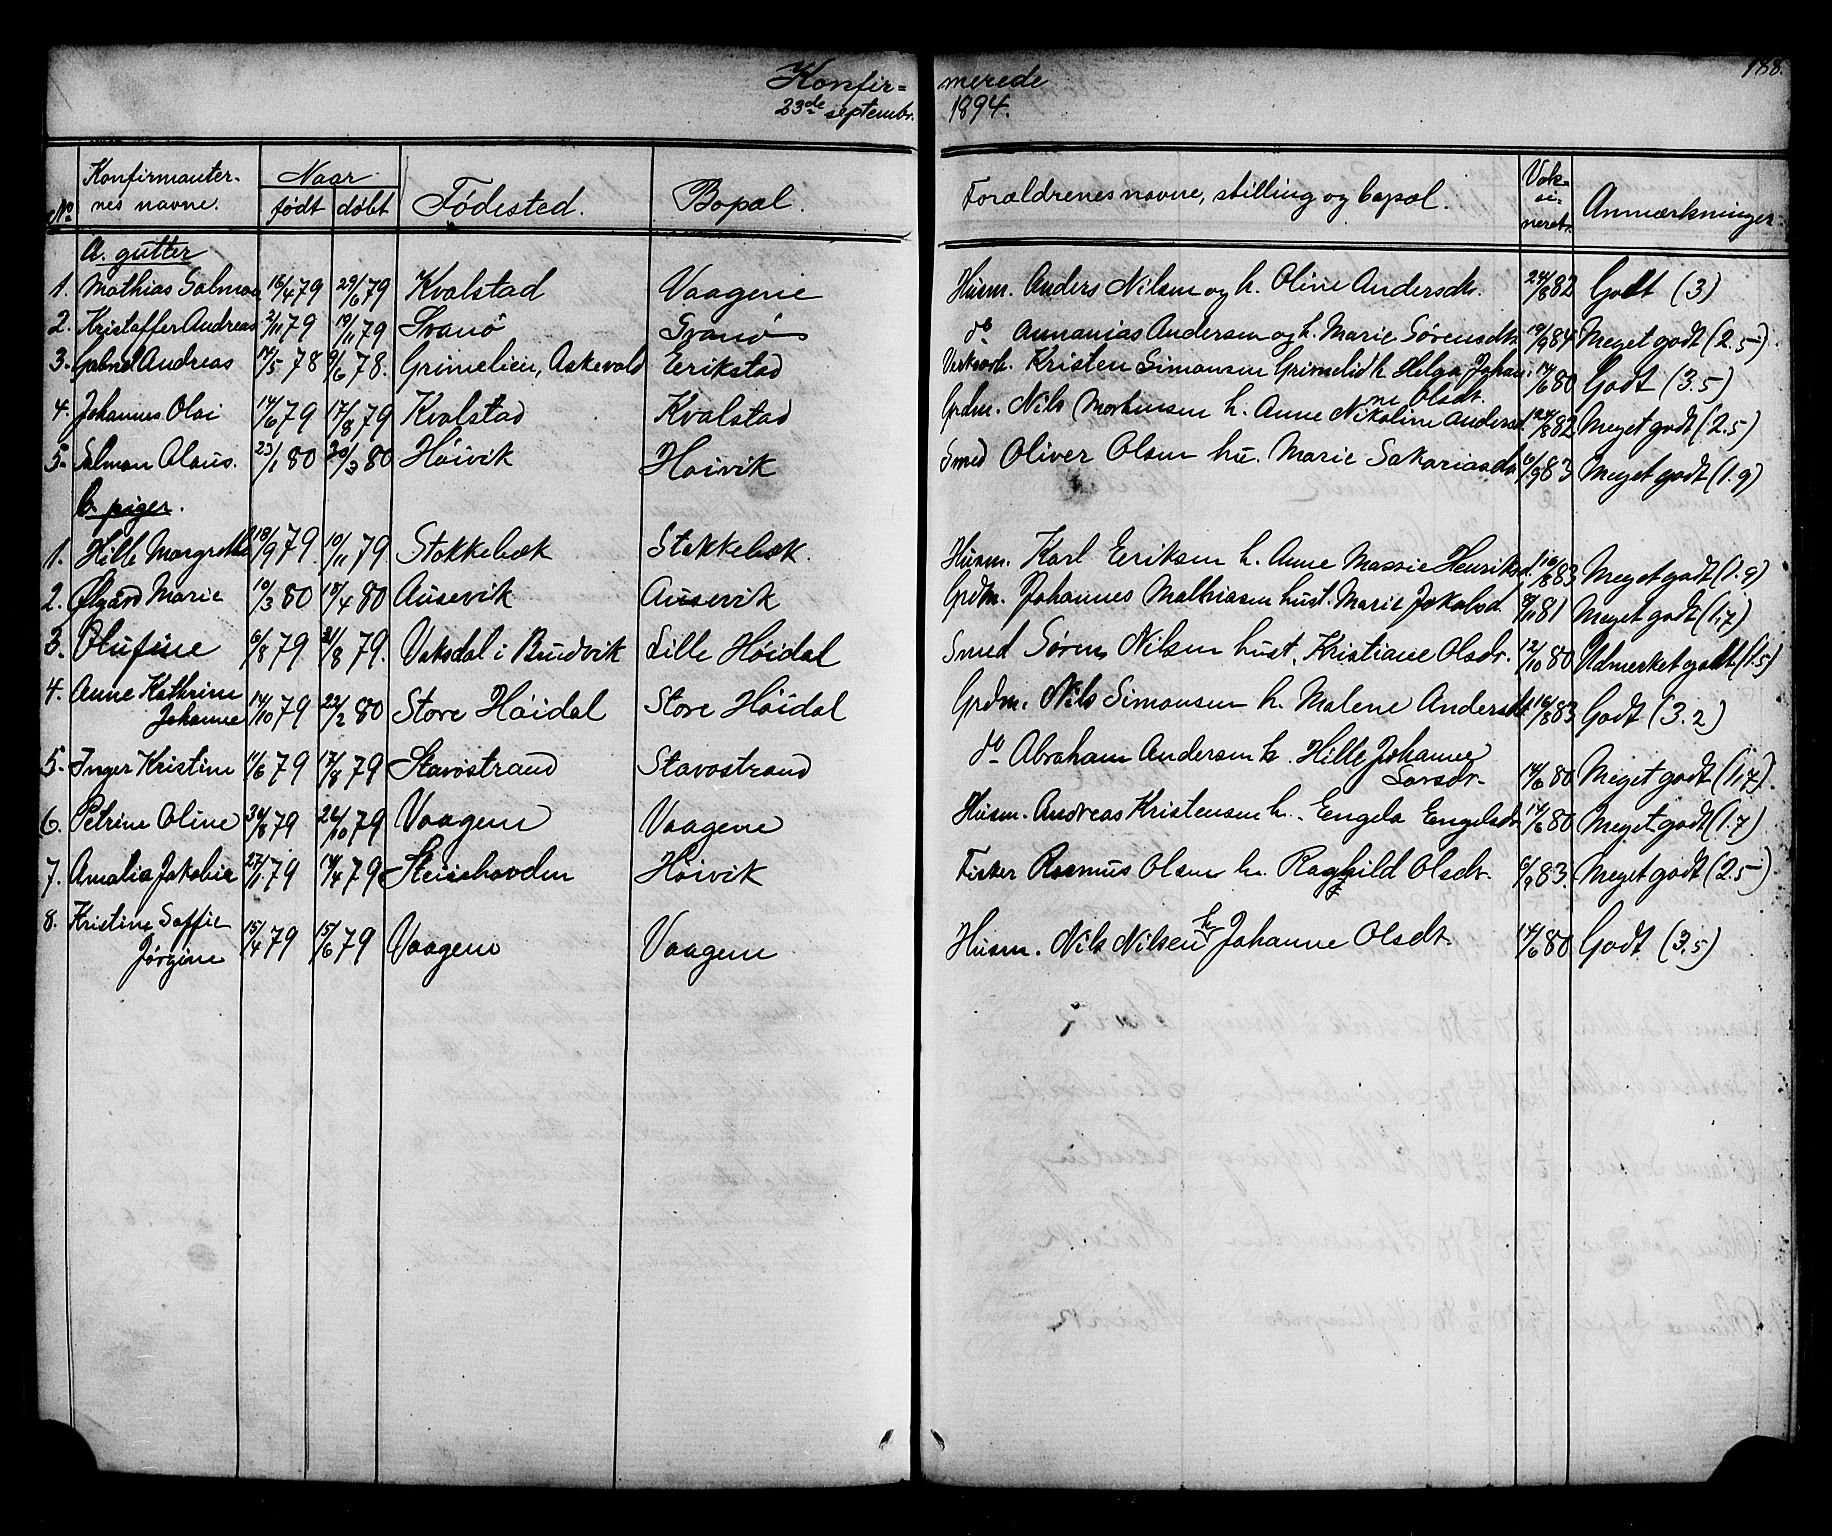 188.
Konfirmerede
23de septembr. 1894.
No Konfirmanternes navne. Naar født døbt Fødested. Bopæl. Forældrenes navne, stilling og bopæl. Vaksineret. Anmærkninger.
A. gutter
1. Mathias Salmon 18/4 79 29/6 79 Kvalstad Vaagene Husm. Anders Nilsen og h. Oline Andersdt. 24/8 82 Godt (3)
2. Kristoffer Andreas 2/11 79 19/11 79 Svanø Svanø do Annanias Andersen og h. Marie Sørensdt. 19/9 84 Meget godt (2.5)
3. Gabriel Andreas 17/5 78 9/6 78. Grimelien, Askevold Eerikstad Kristen Simonsen Grimelid h Helga Johanne Olsdt. 14/6 80 Godt (3.5)
4. Johannes Olai 14/6 79 17/8 79 Kvalstad Kvalstad Grdm. Nils Mortensen h. Anne Nikoline Andersd. 24/8 82 Meget godt (2.5)
5. Salmon Olaus. 23/1 80 30/3 80 Høivik Høivik Smed Oliver Olsen hu. Marie Sakariasdt. 6/9 83 Meget godt (1.9)
b. piger.
1. Hille Margrethe 18/9 79. 10/11 79 Stokkebæk Stokkebæk. Husm. Karl Eeriksen h. Anne Massie Henriksd. 16/8 83 Meget godt (1.9)
2. Ølgård Marie 10/3 80 18/4 80 Ausevik Ausevik Grdm. Johannes Mathiasen hust. Marie Jakobsd. 8/11 81 Meget godt (1,7)
3. Olufine 6/8 79 31/8 79. Vaksdal i Brudvik Lille Høidal Smed Søren Nilsen hust. Kristiane Olsdr. 12/10 80 Udmerket godt (1.5)
4. Anne Kathrine Johanne 14/10 79 22/2 80 Store Høidal Store Høidal Grdm. Nils Simonsen h. Malene Andersdt. 16/8 83 Godt (3.2)
5. Inger Kristine 11/6 79 17/8 79 Stavøstrand Stavøstrand do Abraham Andersen h. Hille Johanne Larsdr. 14/6 80 Meget godt (1,7).
6. Petrine Oline 24/8 79 26/10 79 Vaagene Vaagene Husm. Andreas Kristensen h. Engela Engelsdr. 14/6 80 Meget godt (1.7)
7. Amalia Jakobine 27/1 79 14/4 79 Steishovden Høivik Fisker Rasmus Olsen h. Raghild Olsdr. 6/9 83. Meget godt (2.5)
8. Kristine Soffie Jørgine 15/4 79 15/6 79 Vaagene Vaagene Husm. Nils Nilsen h. Johanne Olsdt. 14/6 80 Godt (3,5)